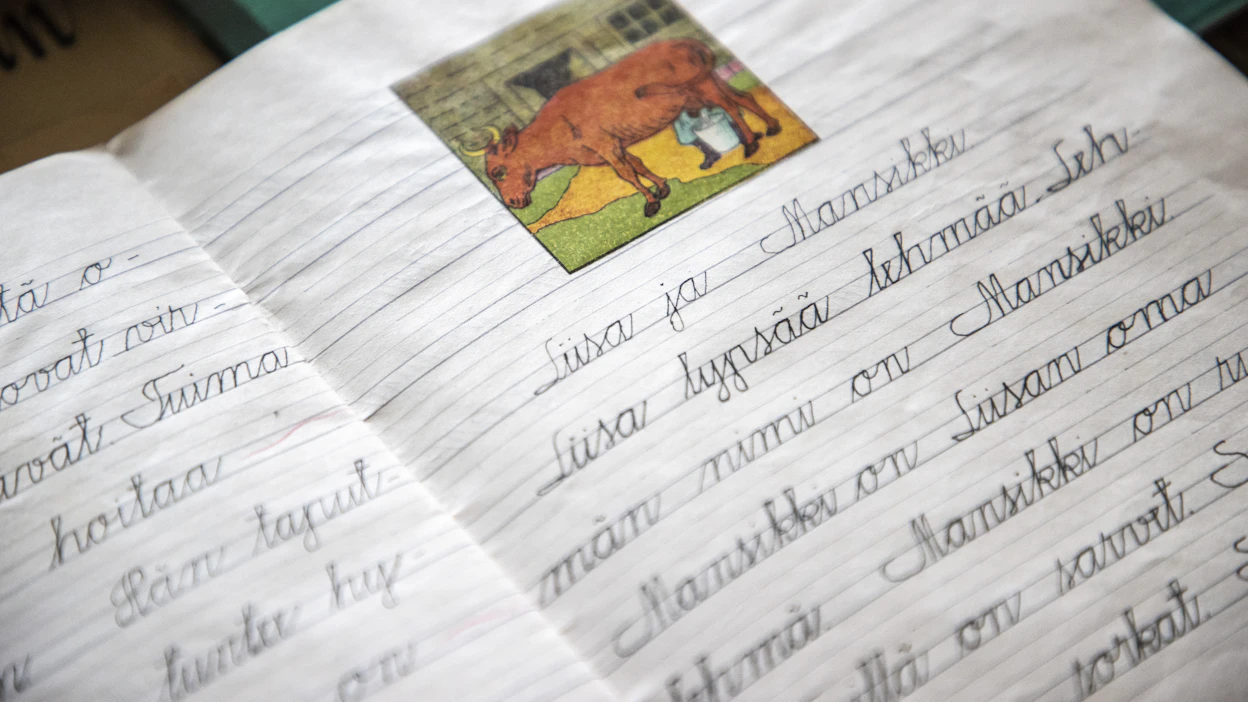 tä o-
ovat vir-
vät. Tuima
hoitaa
Hän taput-
hy-
on
Liisa ja Mansikki.
Liisa lypsää lehmää. Leh-
män nimi on Mansikki.
Mansikki on Liisan oma
lehmä. Mansikki on
llä on sarvet. S
sorkat.